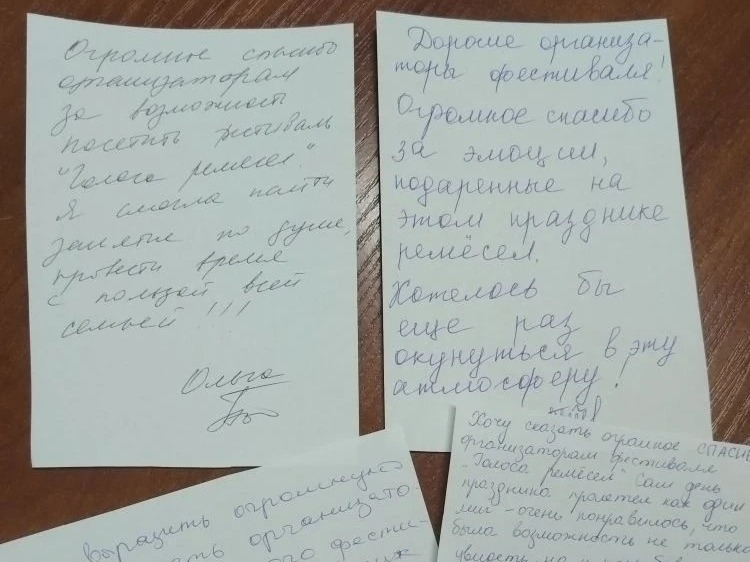 Огромное спасибо
организаторам
за возможность
посетить фестиваль
"Голоса ремёсел".
Я смогла найти
занятие по душе,
провести время
с пользой всей
семьёй!!!
Ольга
Дорогие организа-
торы фестиваля!
Огромное спасибо
за эмоции,
подаренные на
этом празднике
ремёсел.
Хотелось бы
еще раз
окунуться в эту
атмосферу!
Хочу сказать огромное СПАСИБ
организаторам фестиваля
"Голоса ремёсел" Сам день
праздника пролетел как один
миг - очень понравилось, что
была возможность не только
увидеть, но и
выразить огромную
организато-
фести-